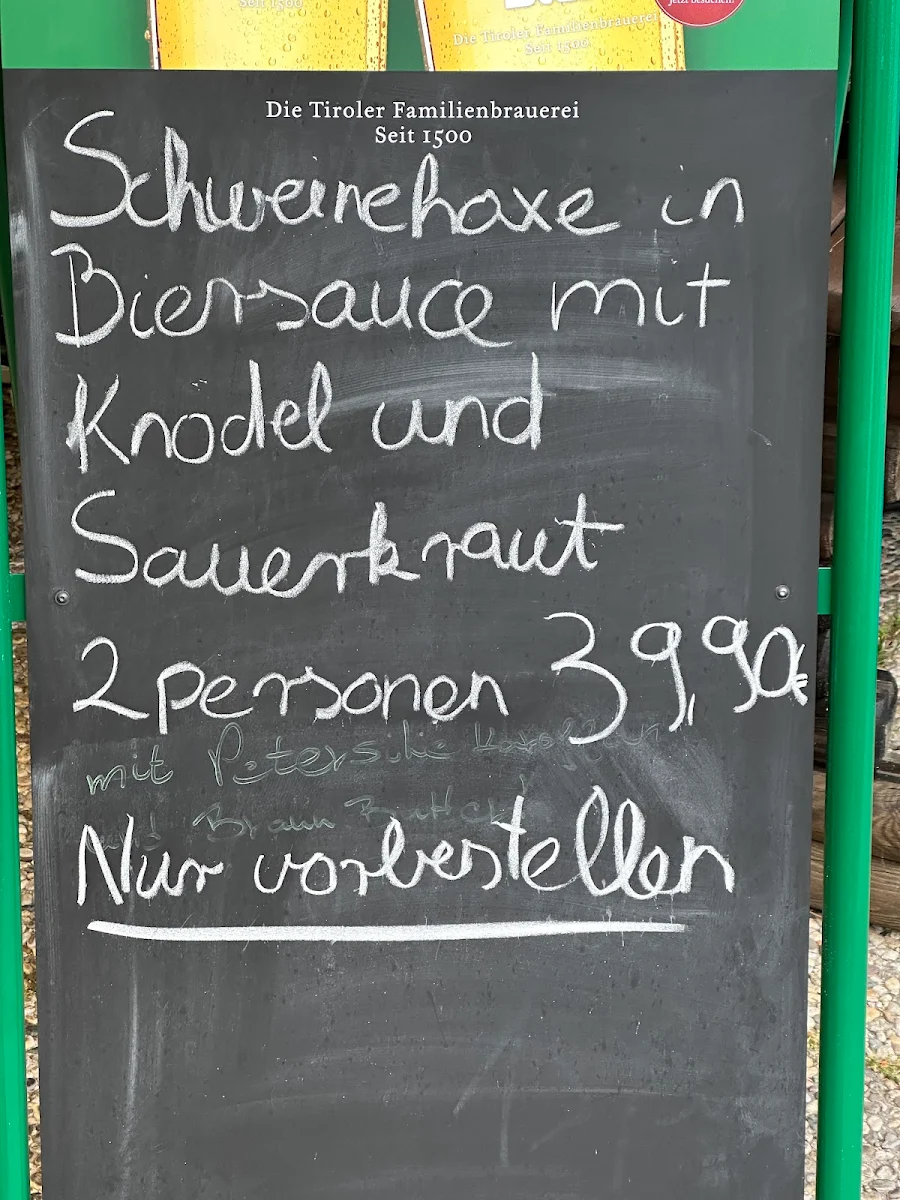 Seit 1500
Die Tiroler Familienbrauerei
Seit 1500
Jetzt besuchen!
Die Tiroler Familienbrauerei
Seit 1500
Schweinehaxe in
Biersauce mit
Knödel und
Sauerkraut
2 personen 39,90€
mit Petersilie
und Braun
Nur vorbestellen